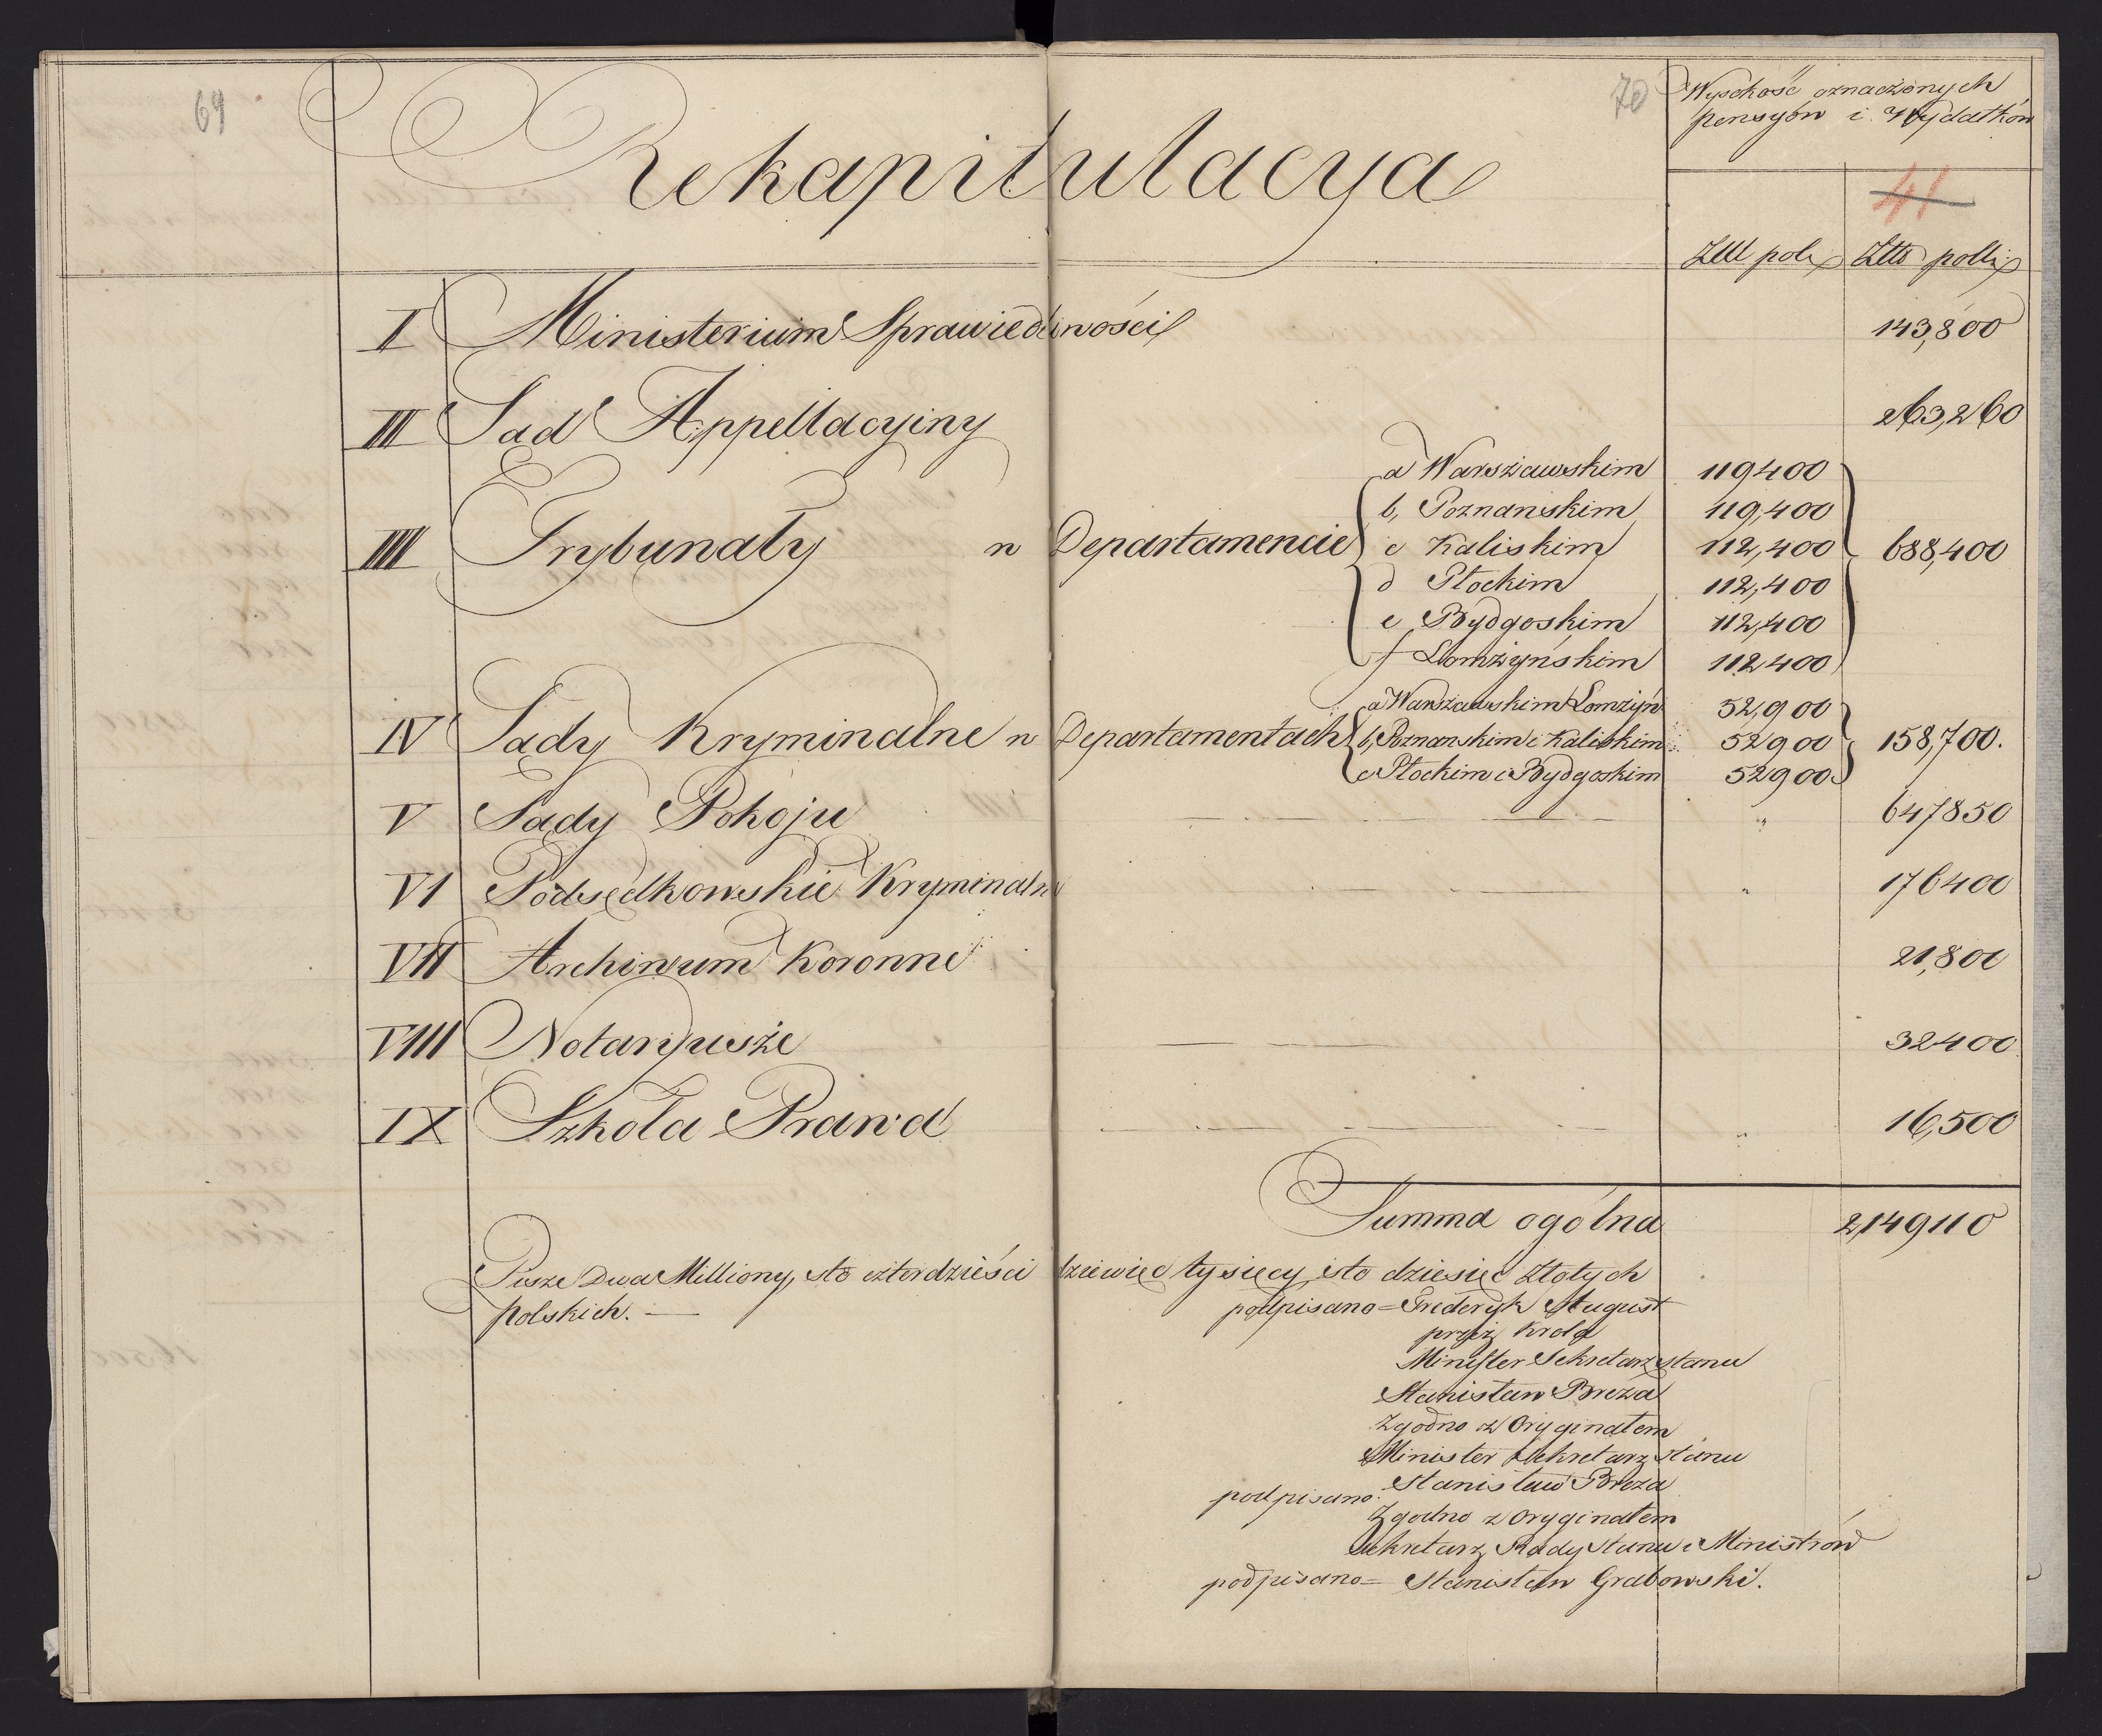 69
70
Wysokość oznaczonych
pensyów i Wydatków
Rekapitulacya
41
Złł pols Złło polls
I Ministerium Sprawiedliwości 143,800
III Sad Appellacyiny 263,260
a Warszawskim 119400
b, Poznanskim 119,400
IIII Trybunały w Departamencie c Kaliskim 112,400 688,400
d Płockim 112,400
e Bydgoskim 112,400
f Łomżyńskim 112400
a Warszawskim Łomżyń 52,900
IV Sady Kryminalne w Departamentach b, Poznanskim i Kaliskim 52900 158,700.
c Płockim i Bydgoskim 52900
V Sady Pokoju " 647850
VI Podsędkowskie Kryminalne " 176400
VII Archiwum Koronne 21,800
VIII Notaryusze 32400
IX Szkoła Prawa " 16,500
Summa ogólna 2,149110
Pisze Dwa Milliony, sto czterdzieści dziewięć tysięcy sto dziesięć Złotych
polskich. —
podpisano = Frederyk August
przez Krola
Minister Sekretarz stanu
Stanisław Breza
Zgodno z Oryginałem
Minister Sekretarz stanu
podpisano: Stanisław Breza
Zgodno z Oryginałem
Sekretarz Rady Stanu i Ministrów
podpisano = Stanisław Grabowski.